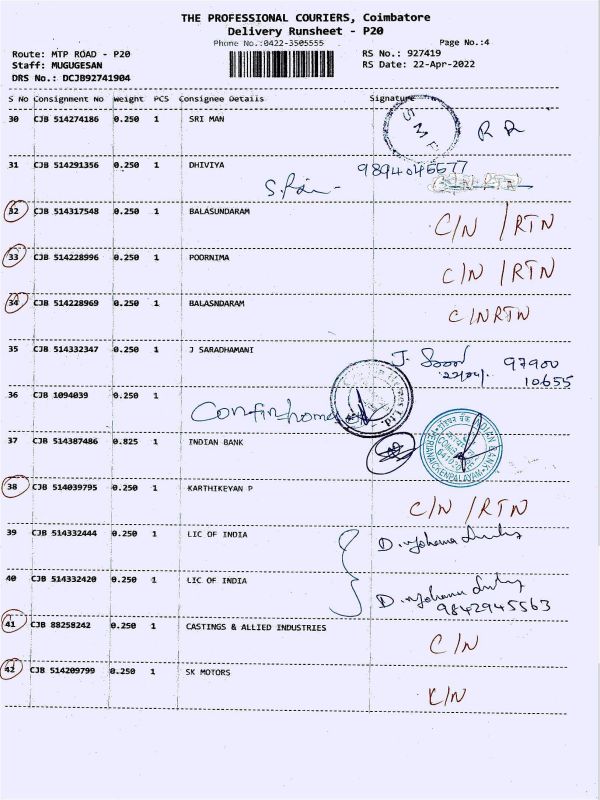 THE PROFESSIONAL COURIERS, Coimbatore
Delivery Runsheet - P20
Phone No.:0422-3505555
Page No.:4
Route: MTP ROAD - P20
RS No.: 927419
Staff: MUGUGESAN
RS Date: 22-Apr-2022
DRS No.: DCJB92741904
S No Consignment No Weight PCS Consignee Details Signature
30 CJB 514274186 0.250 1 SRI MAN
S M F
R R
31 CJB 514291356 0.250 1 DHIVIYA 9894045577
C/N RTN
32 CJB 514317548 0.250 1 BALASUNDARAM
C/N / RTN
33 CJB 514228996 0.250 1 POORNIMA
C/N / RTN
34 CJB 514228969 0.250 1 BALASNDARAM
C/NRTN
35 CJB 514332347 0.250 1 J SARADHAMANI J.
97900
22/04/. 10655
36 CJB 1094039 0.250 1
Ltd.
37 CJB 514387486 0.825 1 INDIAN BANK
INDIAN BANK
38 CJB 514039795 0.250 1 KARTHIKEYAN P
C/N / RTN
39 CJB 514332444 0.250 1 LIC OF INDIA
D.
40 CJB 514332420 0.250 1 LIC OF INDIA
D.
9842945563
41 CJB 88258242 0.250 1 CASTINGS & ALLIED INDUSTRIES
C/N
42 CJB 514209799 0.250 1 SK MOTORS
C/N